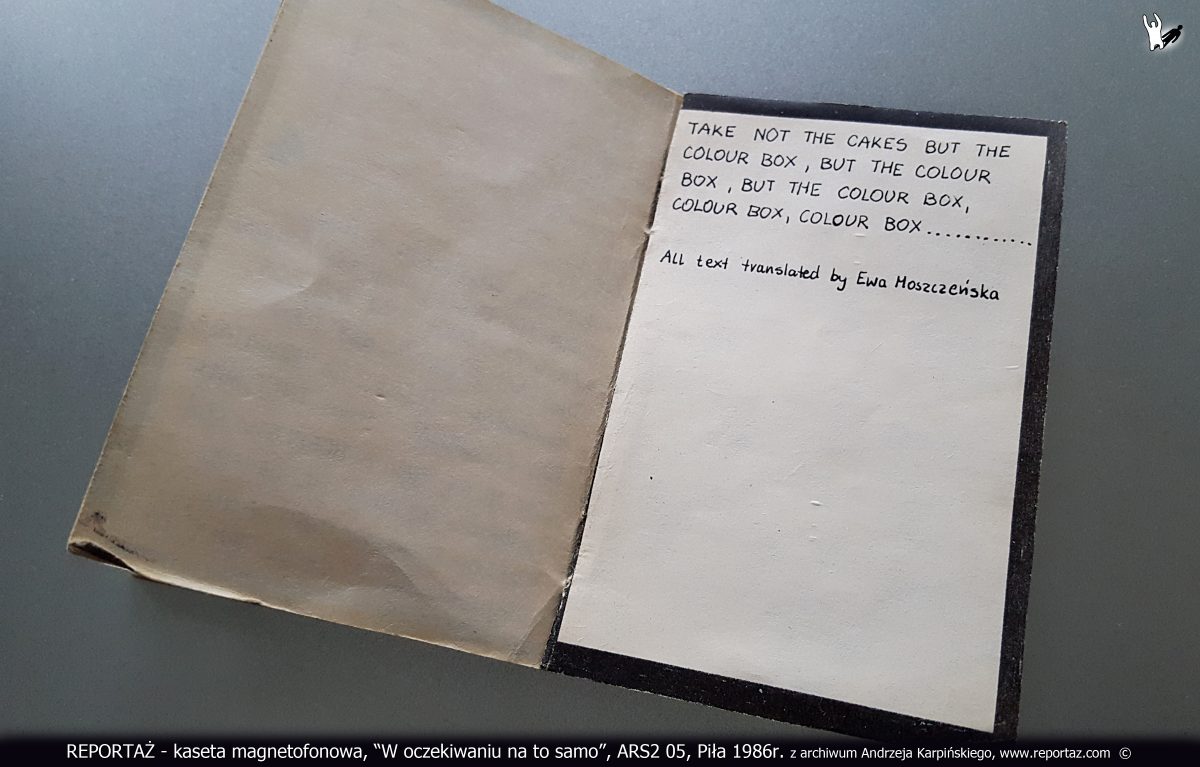 TAKE NOT THE CAKES BUT THE
COLOUR BOX, BUT THE COLOUR
BOX, BUT THE COLOUR BOX,
COLOUR BOX, COLOUR BOX.............
All text translated by Ewa Moszczeńska
REPORTAŻ - kaseta magnetofonowa, “W oczekiwaniu na to samo”, ARS2 05, Piła 1986r. z archiwum Andrzeja Karpińskiego, www.reportaz.com ©